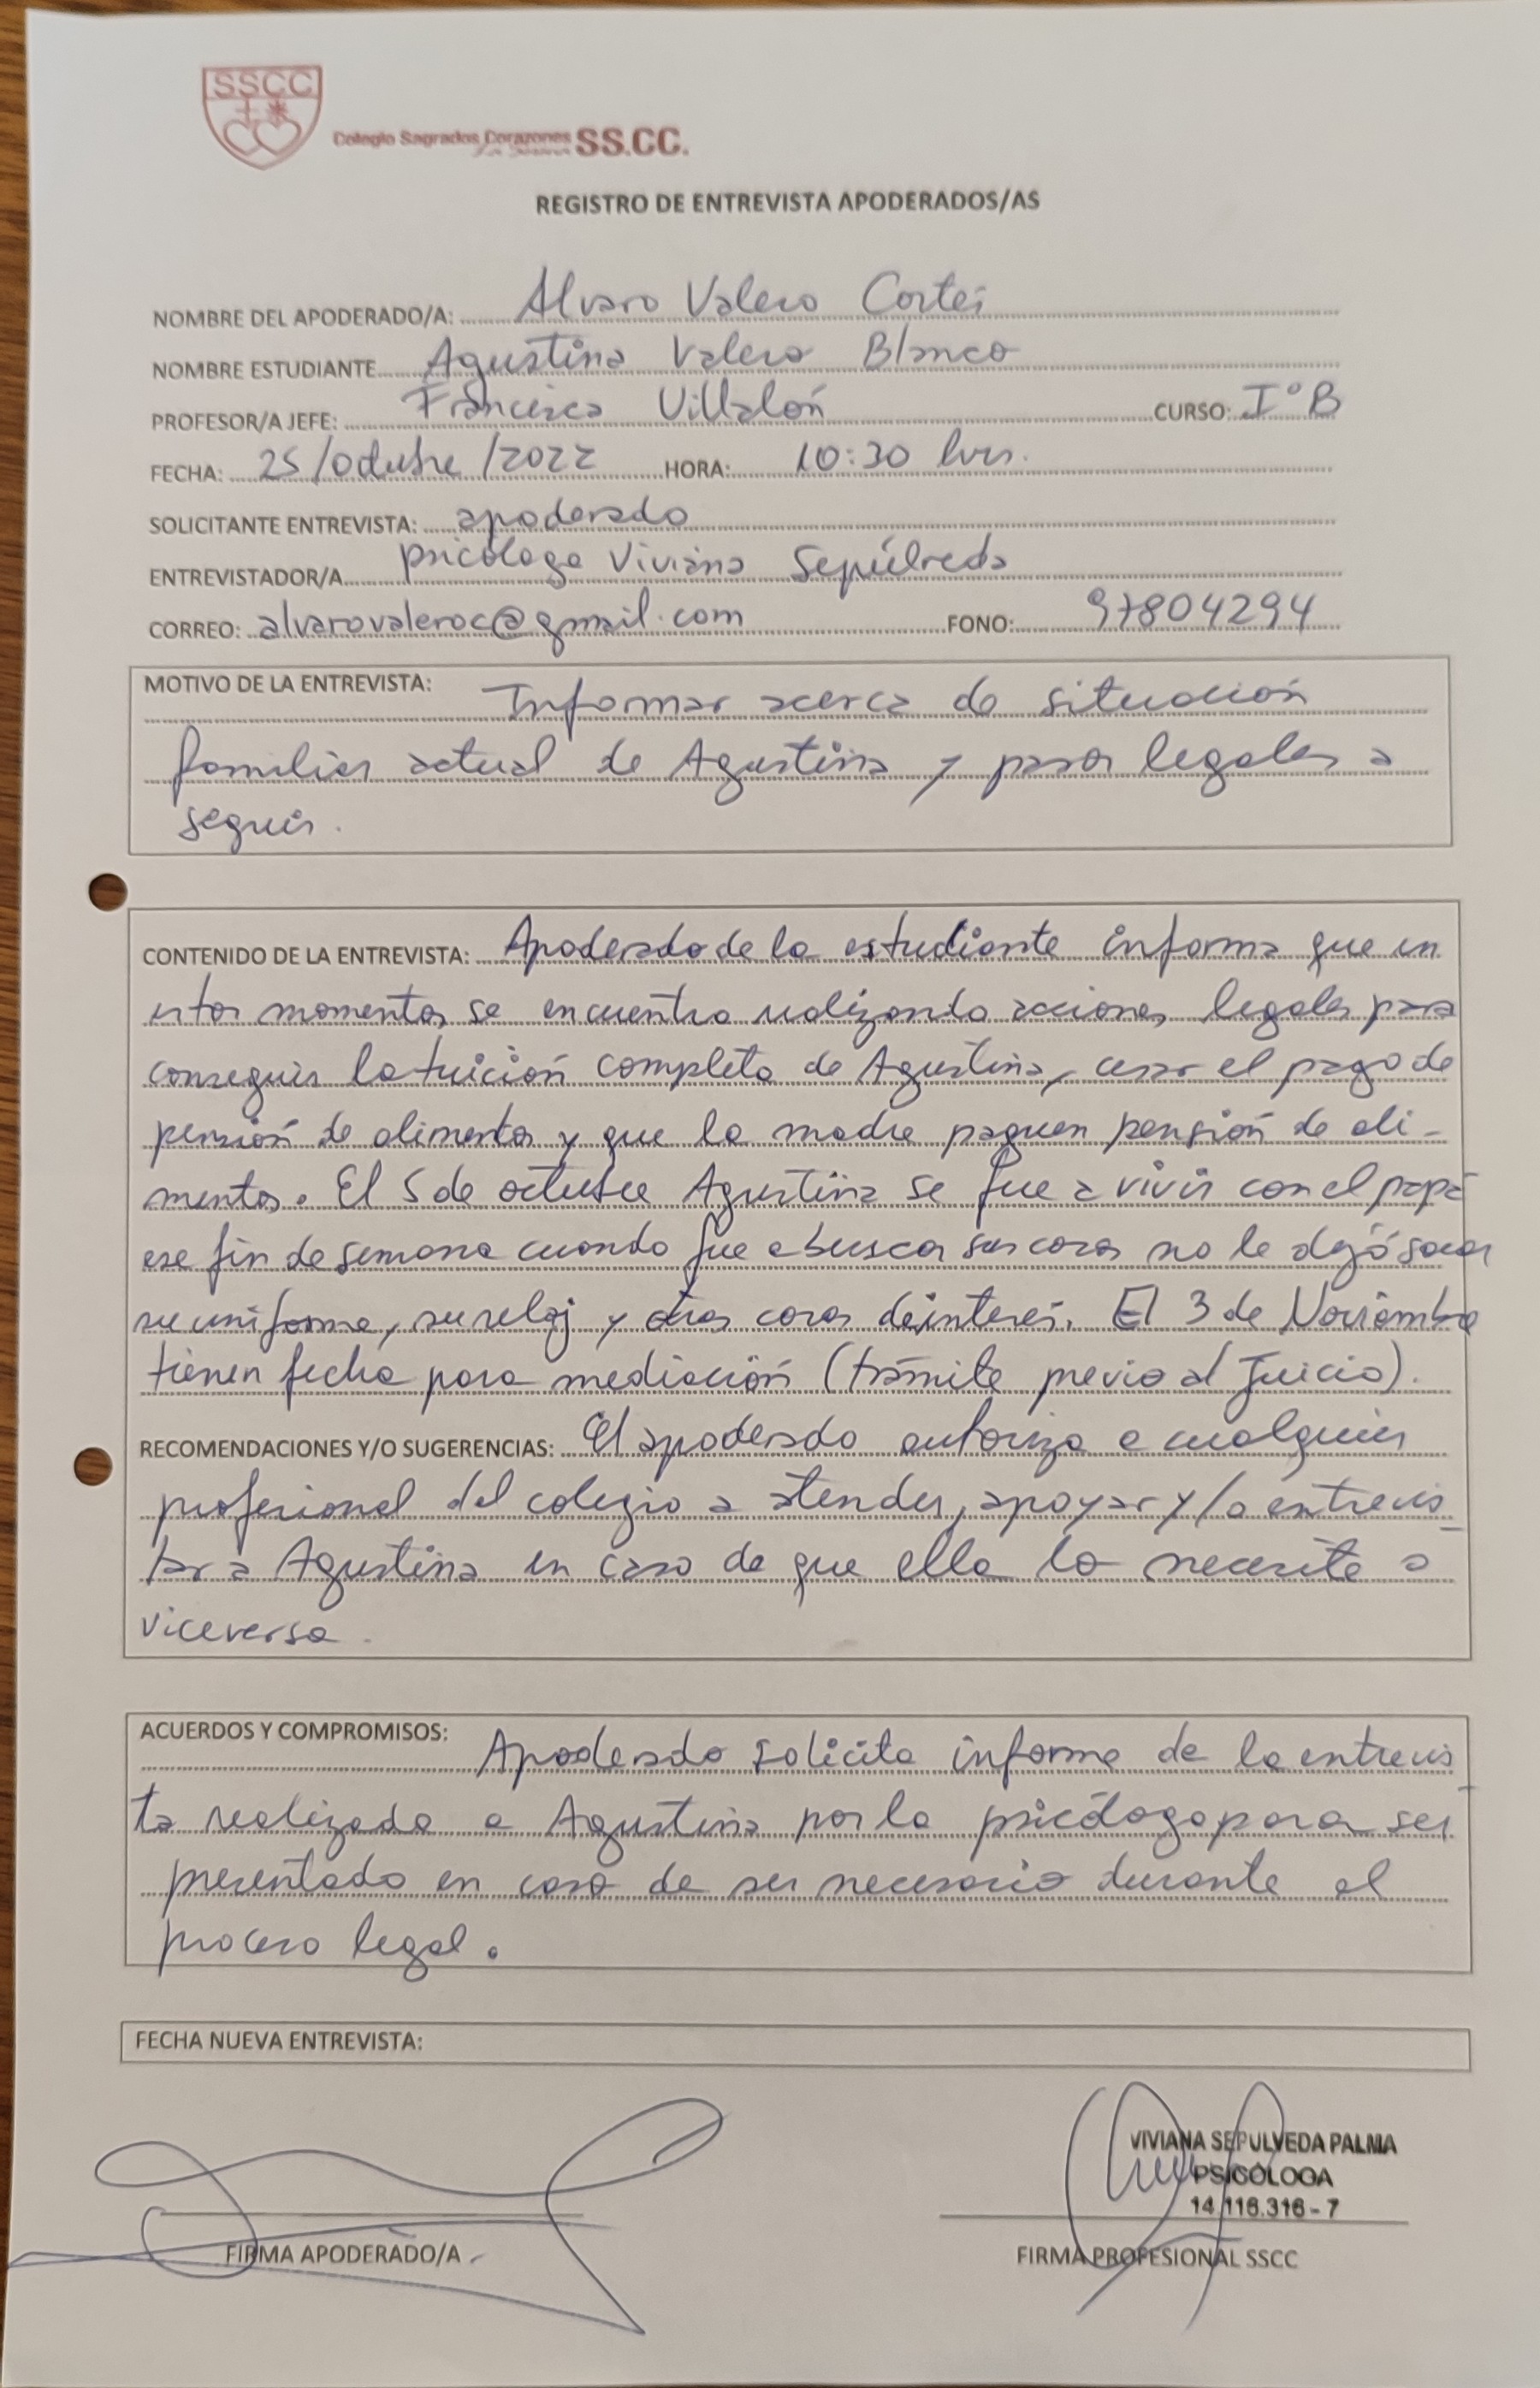 SSCC
Colegio Sagrados Corazones SS.CC.
REGISTRO DE ENTREVISTA APODERADOS/AS
NOMBRE DEL APODERADO/A: Alvaro Valero Cortés
NOMBRE ESTUDIANTE Agustina Valero Blanco
PROFESOR/A JEFE: Francisca Villalón CURSO: I°B
FECHA: 25/octubre/2022 HORA: 10:30 hrs.
SOLICITANTE ENTREVISTA: apoderado
ENTREVISTADOR/A psicóloga Viviana Sepúlveda
CORREO: alvarovaleroc@gmail.com FONO: 97804294
MOTIVO DE LA ENTREVISTA: Informar acerca de situación
familiar actual de Agustina y pasos legales a
seguir.
CONTENIDO DE LA ENTREVISTA: Apoderado de la estudiante informa que en
estos momentos se encuentra realizando acciones legales para
conseguir la tuición completa de Agustina, cesar el pago de
pensión de alimentos y que la madre paguen pensión de ali-
mentos. El 5 de octubre Agustina se fue a vivir con el papá
ese fin de semana cuando fue a buscar sus cosas no le dejó sacar
su uniforme, su reloj y otras cosas de interés. El 3 de Noviembre
tienen fecha para mediación (trámite previo al Juicio).
RECOMENDACIONES Y/O SUGERENCIAS: El apoderado autoriza a cualquier
profesional del colegio a atender, apoyar y/o entrevis-
tar a Agustina en caso de que ella lo necesite o
viceversa.
ACUERDOS Y COMPROMISOS: Apoderado solicita informe de la entrevis-
ta realizada a Agustina por la psicóloga para ser
presentado en caso de ser necesario durante el
proceso legal.
FECHA NUEVA ENTREVISTA:
VIVIANA SEPULVEDA PALMA
PSICÓLOGA
14.116.316-7
FIRMA APODERADO/A FIRMA PROFESIONAL SSCC